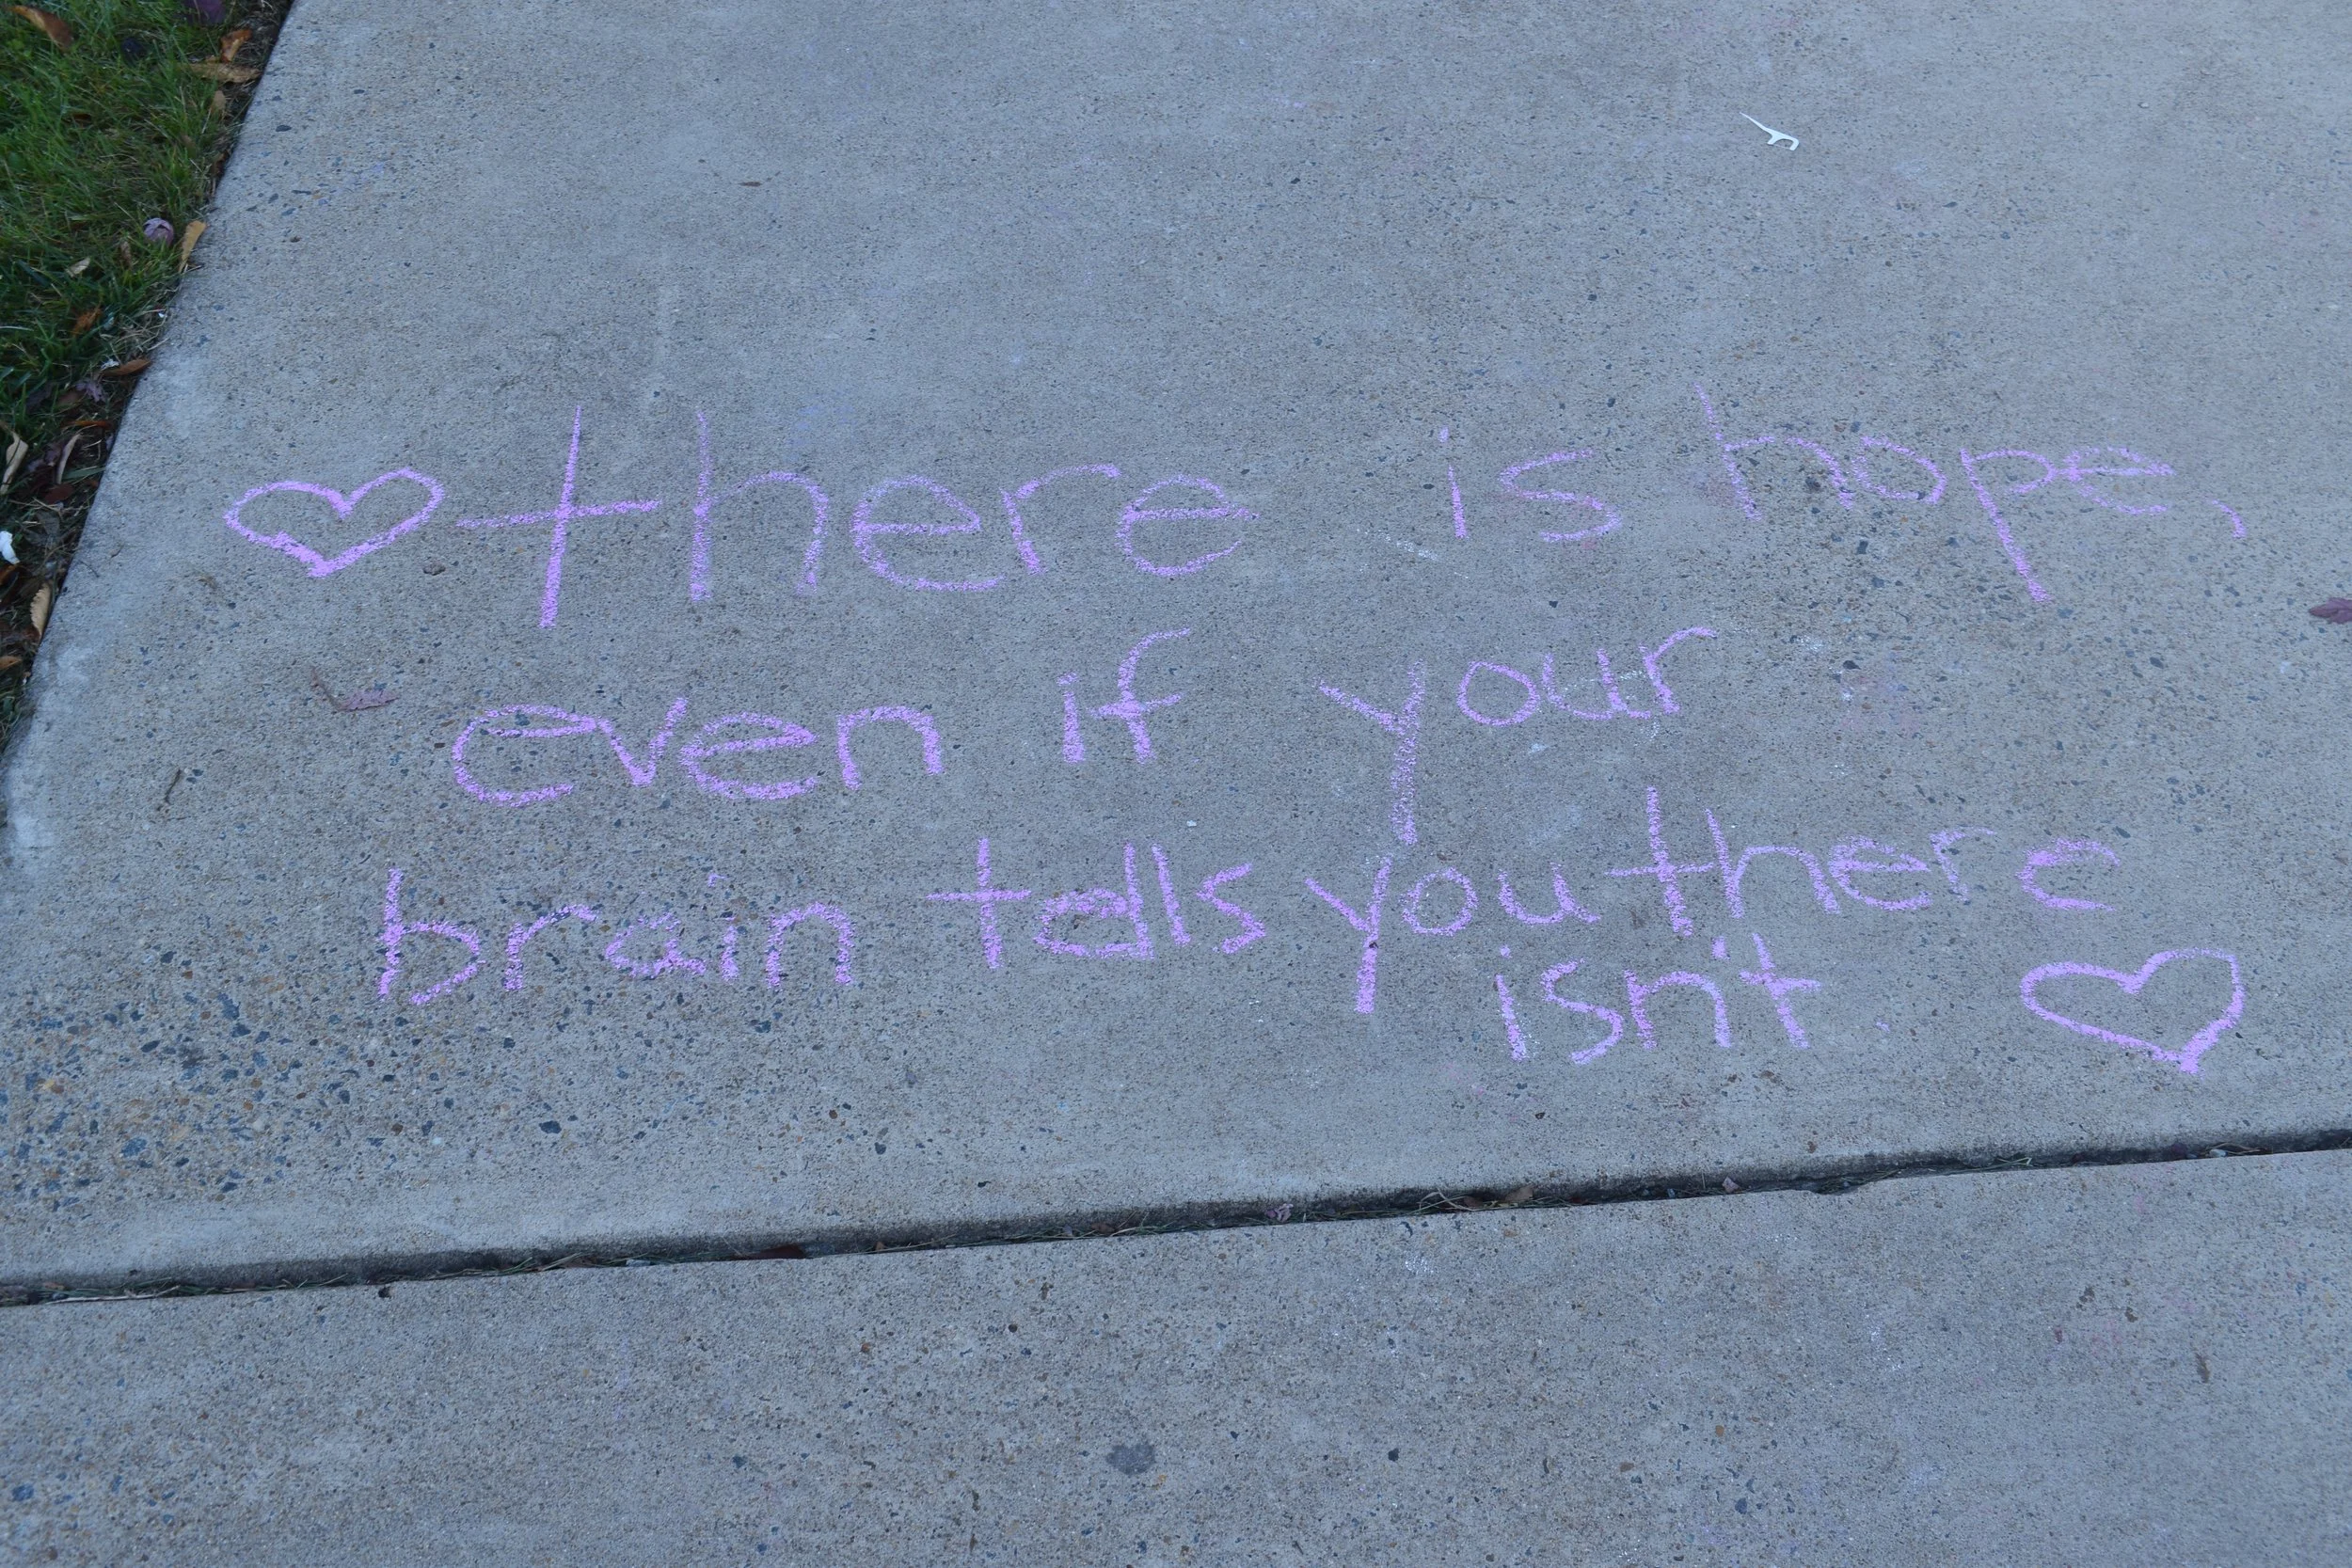 there is hope,
even if your
brain tells you there
isn't